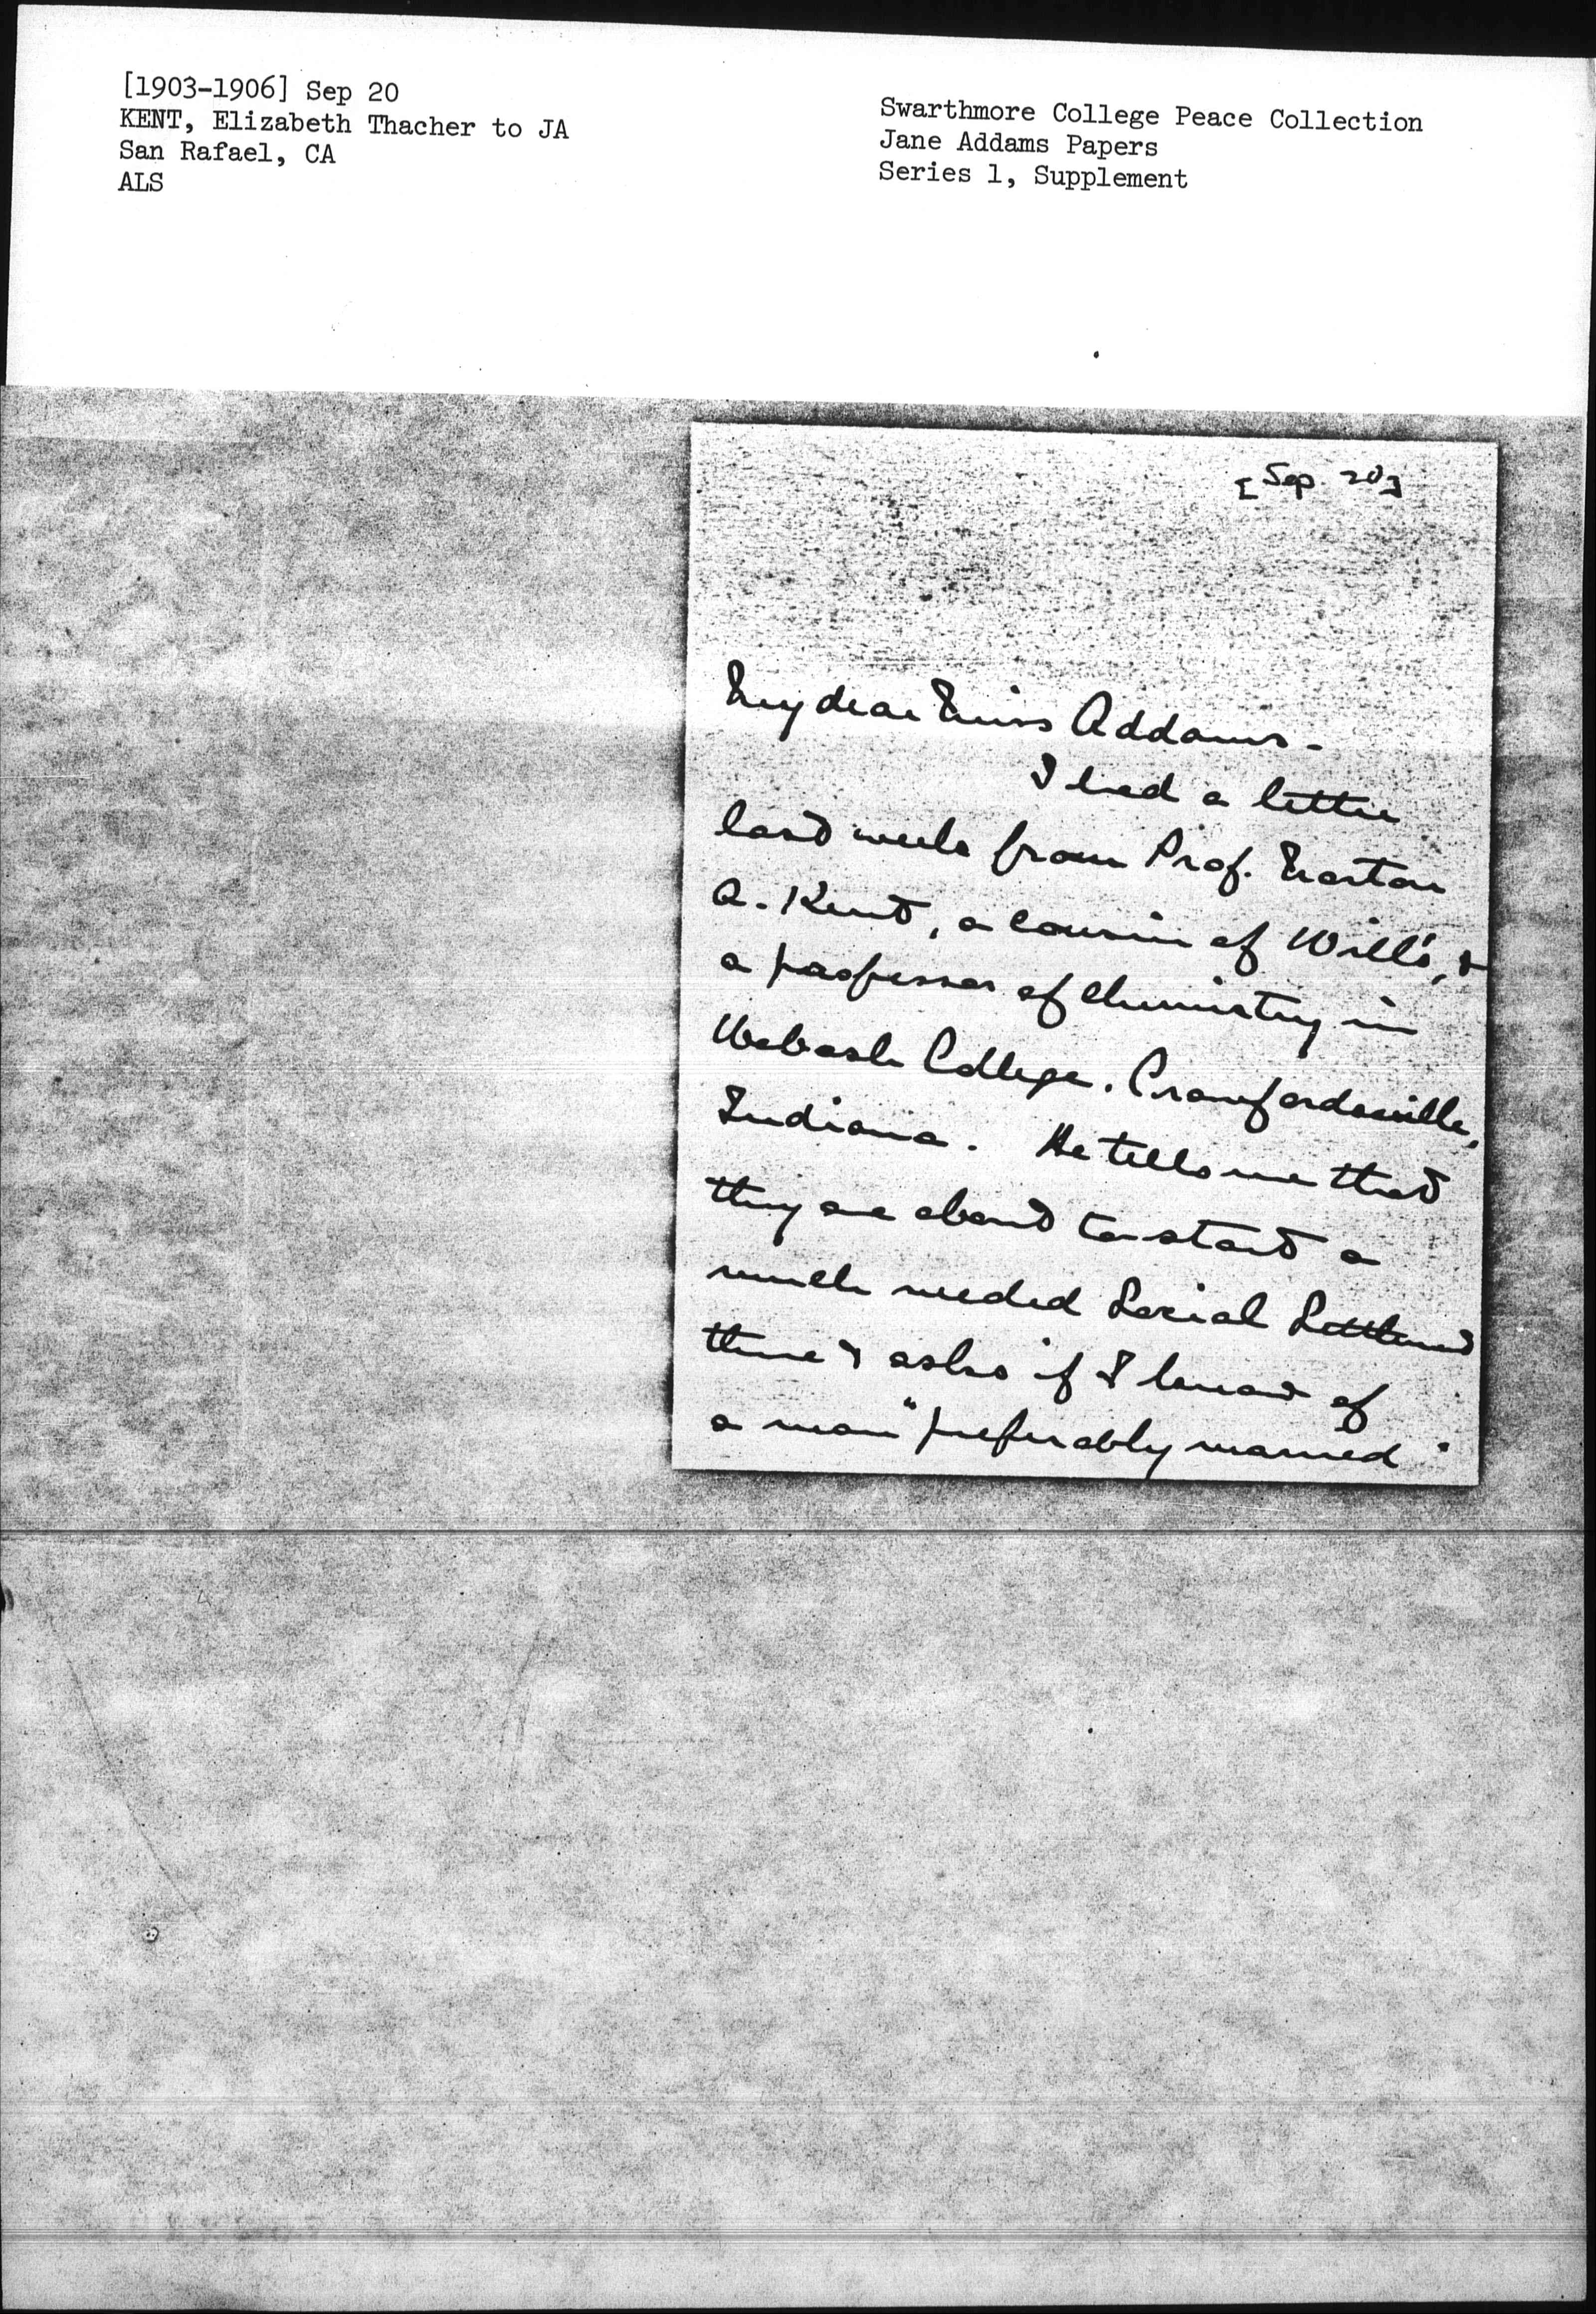 [1903-1906] Sep 20
KENT, Elizabeth Thacher to JA
San Rafael, CA
ALS
Swarthmore College Peace Collection
Jane Addams Papers
Series 1, Supplement
[Sep. 20]
My dear Miss Addams -
I had a letter
last week from Prof. Norton
A. Kent, a cousin of Will's, &
a professor of chemistry in
Wabash College. Crawfordsville,
Indiana. He tells me that
they are about to start a
much needed Social Settlement
there & asks if I know of
a man "preferably married"